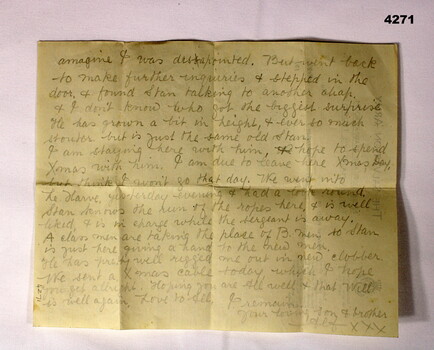 4271
amagine I was dissapointed. But went back
to make further inquiries & stepped in the
door, & found Stan talking to another chap.
& I don't know who got the biggest surprise
He has grown a bit in height, & ever so much
stouter but is just the same old Stan.
I am staying here with him, & hope to spend
Xmas with him. I am due to leave here Xmas Day,
but think I won't go that day. We went into
Le Harve yesterday evening & had a look round.
Stan knows the run of the ropes here, & is well
liked, & is in charge while the sergeant is away.
A class men are taking the place of B. men so Stan
is just here giving a hand to the new men.
He has pretty well rigged me out in new clobber
We sent a Xmas cable today which I hope
you get allright. Hoping you are all well & that Will
is well again. Love to All. I remain
Your loving son & brother
X X X